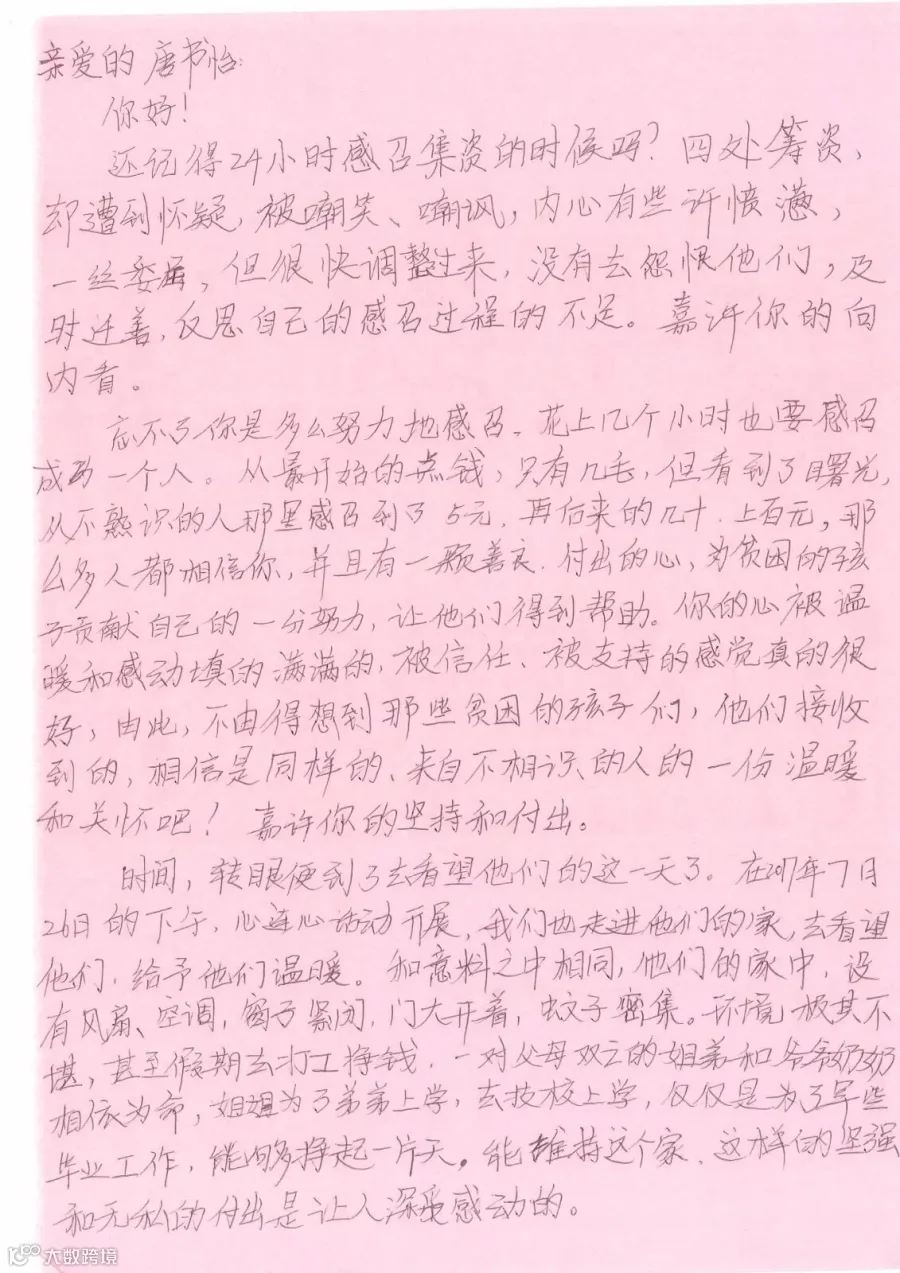 亲爱的 唐书怡:
你好!
还记得24小时感召集资的时候吗?四处筹资,
却遭到怀疑,被嘲笑、嘲讽,内心有些许愤懑,
一丝委屈,但很快调整过来,没有去怨恨他们,及
时迁善,反思自己的感召过程的不足。嘉许你的向
内看。
忘不了你是多么努力地感召。花上几个小时也要感召
成功一个人。从最开始的点钱,只有几毛,但看到了曙光,
从不熟识的人那里感召到了5元,再后来的几十.上百元,那
么多人都相信你,并且有一颗善良.付出的心,为贫困的孩
子贡献自己的一分努力,让他们得到帮助。你的心被温
暖和感动填的满满的,被信任、被支持的感觉真的很
好,由此,不由得想到那些贫困的孩子们,他们接收
到的,相信是同样的、来自不相识的人的一份温暖
和关怀吧!嘉许你的坚持和付出。
时间,转眼便到了去看望他们的这一天了。在2017年7月
26日的下午,心连心活动开展,我们也走进他们的家,去看望
他们.给予他们温暖。和意料之中相同,他们的家中,没
有风扇、空调,窗子紧闭.门大开着,蚊子密集。环境极其不
堪,甚至假期去打工挣钱.一对父母双亡的姐弟和爷爷奶奶
相依为命,姐姐为了弟弟上学,去技校上学,仅仅是为了早些
毕业工作,能够挣起一片天。能维持这个家.这样的坚强
和无私的付出是让人深受感动的。
大数跨境